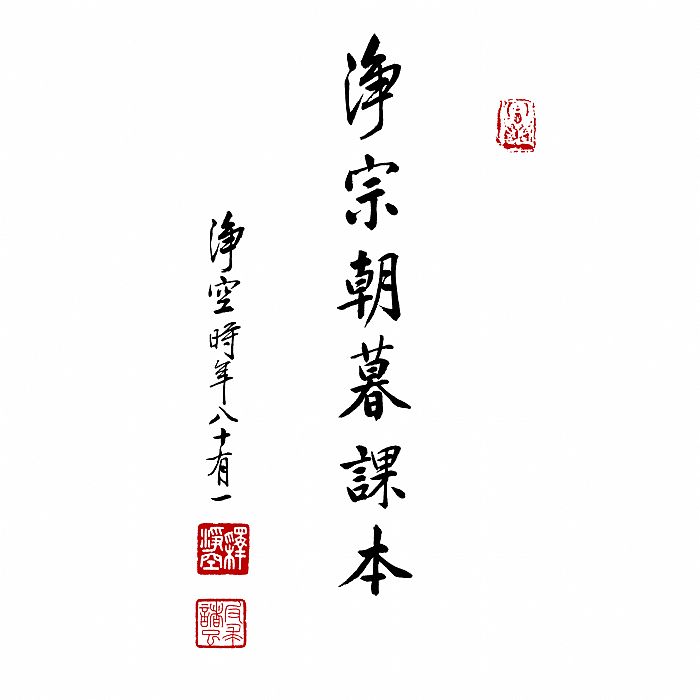 淨宗朝暮課本
淨空時年八十有一
釋淨空